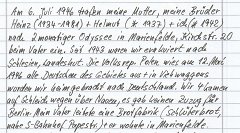 Am 6. Juli 1946 trafen meine Mutter, meine Brüder
Heinz (1934-1981) + Helmut (* 1937) + ich (* 1942)
nach 2 monatiger Odyssee in Marienfelde, Kirchstr. 20
beim Vater ein. Seit 1943 waren wir evakuiert nach
Schlesien, Landeshut. Die Volksrep. Polen wies am 12. Mai
1946 alle Deutschen des Gebietes aus + in Viehwaggons
wurden wir heimgebracht nach Deutschland. Wir kamen
auf Schleich wegen über Mauer, es gab keinen Zuzug für
Berlin. Mein Vater leitete eine Brotfabrik (Schlüterbrot,
nahe S-Bahnhof Papestr.) + er wohnte in Marienfelde.